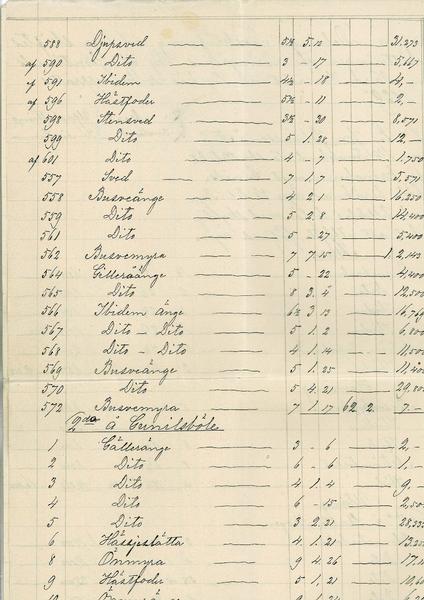 588 Djupsved 5½ 5. 12 31.273
af 590 Dito 3 - 17 5.667
af 591 Ibidem 4½ - 18 4,-
af 596 Hästfoder 5½ - 11 2,-
598 Stensved 3½ - 20 8,571
599 Dito 5 1. 28 12,-
af 601 Dito 4 - 7 1,750
557 Sved 7 1. 7 5.571
558 Busveänge 4 2 1 16,250
559 Dito 5 2 8 14,400
561 Dito 5 - 27 5,400
562 Busvemyra 7 7 15 1. 2,143
564 Gilleråänge 5 - 22 4,400
565 Dito 8 3. 4 12,500
566 Ibidem änge 6½ 3 13
567 Dito - Dito 5 1. 2 6,800
568 Dito - Dito 4 1. 14 11,500
569 Busveänge 5 1. 25 11,400
570 Dito 5 4. 21 29,800
572 Busvemyra 7 1. 17 62 2. 7.-
2da å Gunilsböle
1 Gälleränge 3 - 6 2,-
2 Dito 6 - 6 1.-
3 Dito 4 1. 4 9,-
4 Dito 6 - 15 2,50
5 Dito 3 2. 21
6 4. 1. 21 13.25
8 Önmyra 9 4. 26
9 Hästfoder 5 1. 21 10,60